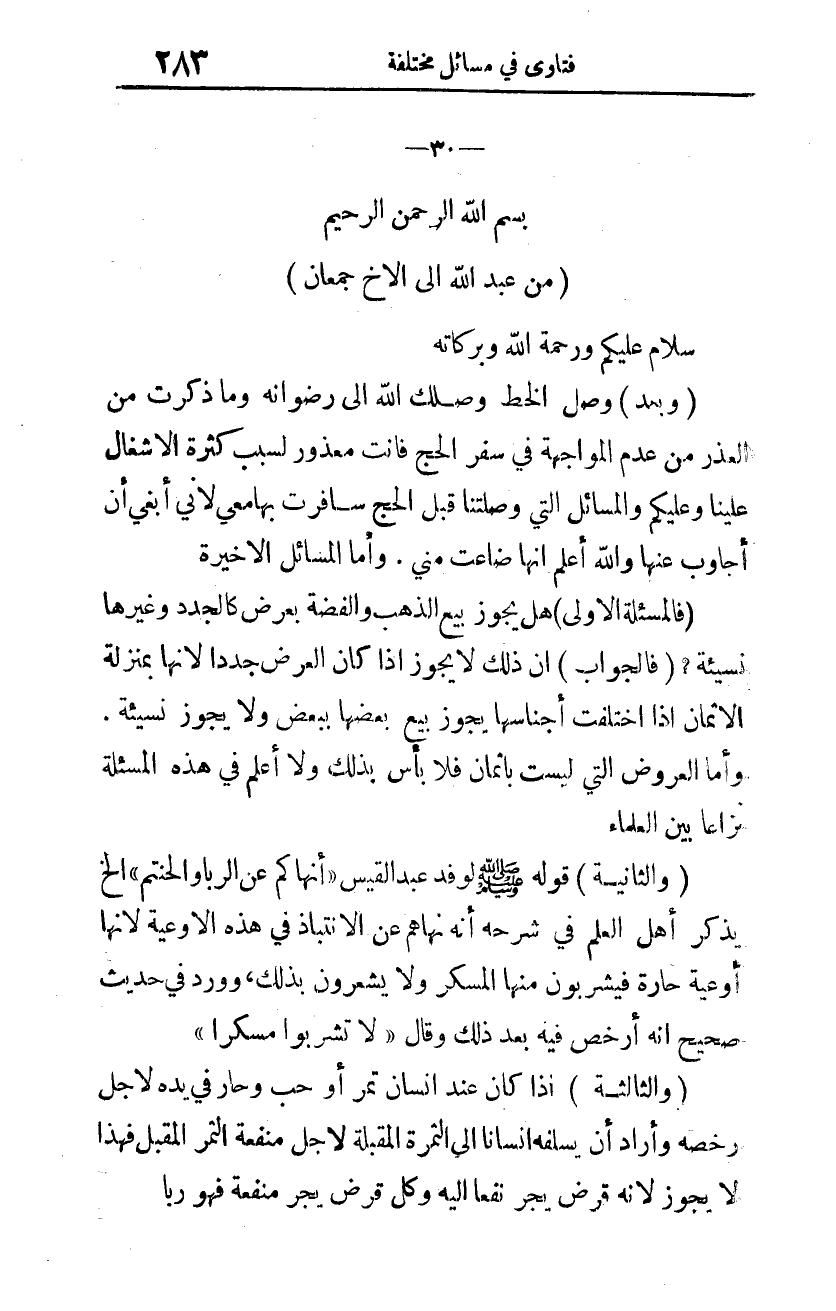 فتاوى في مسائل مختلفة ٢٨٣
—٣٠—
بسم الله الرحمن الرحيم
( من عبد الله الى الاخ جمعان )
سلام عليكم ورحمة الله وبركاته
( وبعد ) وصل الخط وصلك الله الى رضوانه وما ذكرت من
العذر من عدم المواجهة في سفر الحج فانت معذور لسبب كثرة الاشغال
علينا وعليكم والمسائل التي وصلتنا قبل الحج سافرت بها معي لاني أبغي أن
أجاوب عنها والله أعلم انها ضاعت مني . وأما المسائل الاخيرة
(فالمسئلة الاولى) هل يجوز بيع الذهب والفضة بعرض كالجدد وغيرها
نسيئة ? ( فالجواب ) ان ذلك لا يجوز اذا كان العرض جددا لانها بمنزلة
الاثمان اذا اختلفت أجناسها يجوز بيع بعضها ببعض ولا يجوز نسيئة .
وأما العروض التي ليست باثمان فلا بأس بذلك ولا أعلم في هذه المسئلة
نزاعا بين العلماء
( والثانيـة ) قوله ﷺ لوفد عبد القيس «أنهاكم عن الربا والحنتم» الخ
يذكر أهل العلم في شرحه أنه نهاهم عن الانتباذ في هذه الاوعية لانها
أوعية حارة فيشربون منها المسكر ولا يشعرون بذلك، وورد في حديث
صحيح انه أرخص فيه بعد ذلك وقال « لا تشربوا مسكرا »
( والثالثـة ) اذا كان عند انسان تمر أو حب وحار في يده لاجل
رخصه وأراد أن يسلفه انسانا الى الثمرة المقبلة لاجل منفعة التمر المقبل فهذا
لا يجوز لانه قرض يجر نفعا اليه وكل قرض يجر منفعة فهو ربا